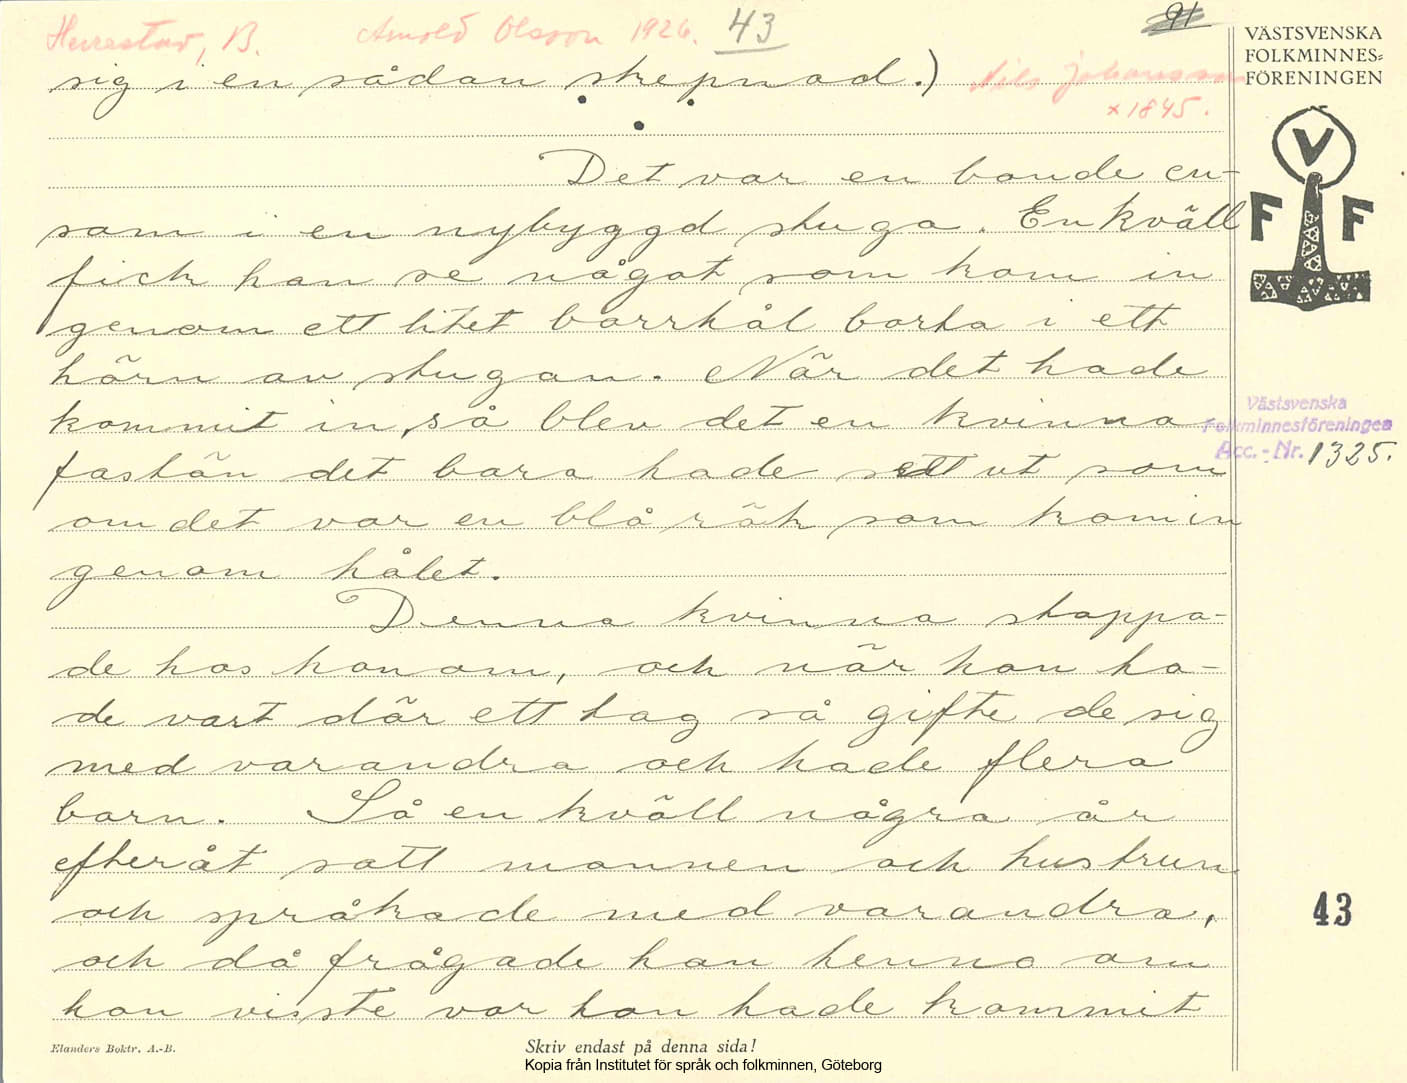 Herrestad, B. Arnold Olsson 1926. 43
91
VÄSTSVENSKA
FOLKMINNES=
FÖRENINGEN
sig i en sådan skepnad.)
Nils Johansson
x 1845.
V
F F
Det var en bonde en-
sam i en nybyggd stuga. En kväll
fick han se något som kom in
genom ett litet borrhål borta i ett
hörn av stugan. När det hade
kommit in, så blev det en kvinna
fastän det bara hade sett ut som
om det var en blå rök som kom in
genom hålet.
Västsvenska
Folkminnesföreningen
Acc.-Nr. 1325.
Denna kvinna stoppa-
de hos honom, och när hon ha-
de vart där ett tag så gifte de sig
med varandra och hade flera
barn. Så en kväll några år
efteråt satt mannen och hustrun
och språkade med varandra,
och då frågade han henne om
hon visste var hon hade kommit
43
Elanders Boktr. A.-B.
Skriv endast på denna sida!
Kopia från Institutet för språk och folkminnen, Göteborg